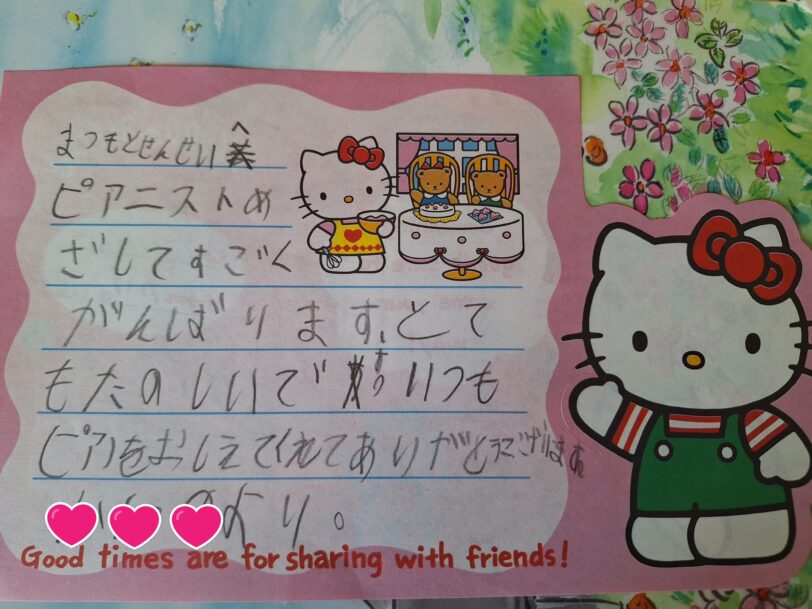 まつもとせんせいへ
ピアニストめ
ざしてすごく
がんばります。とて
もたのしいです。いつも
ピアノをおしえてくれてありがとうございます。
より。
Good times are for sharing with friends!